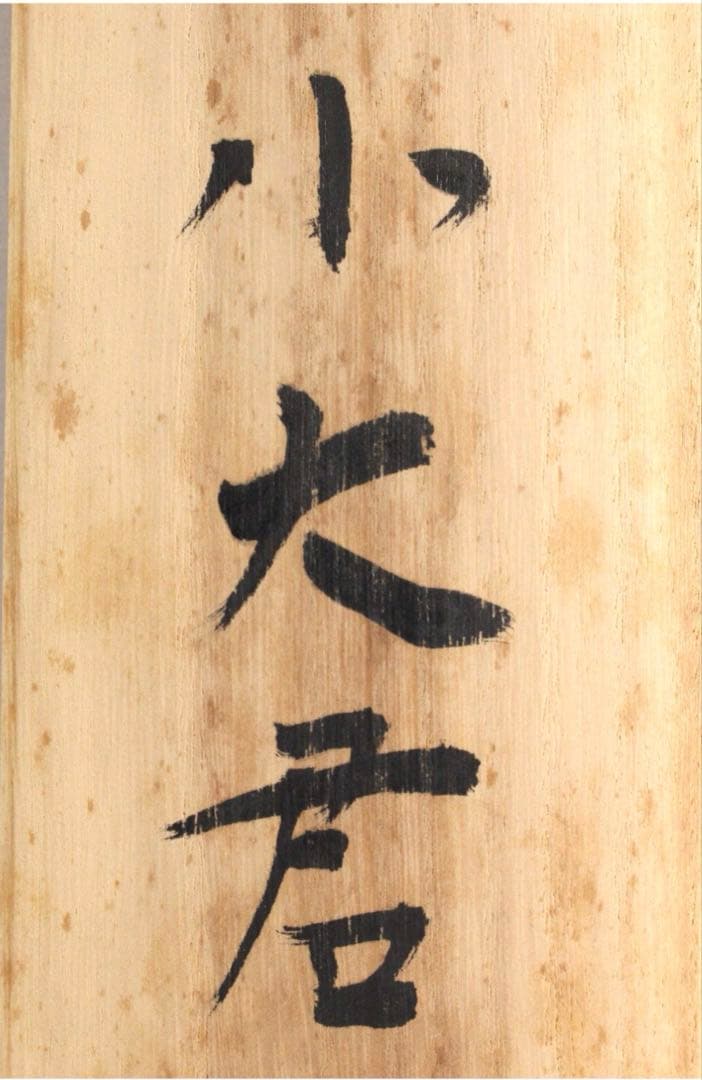 小大君